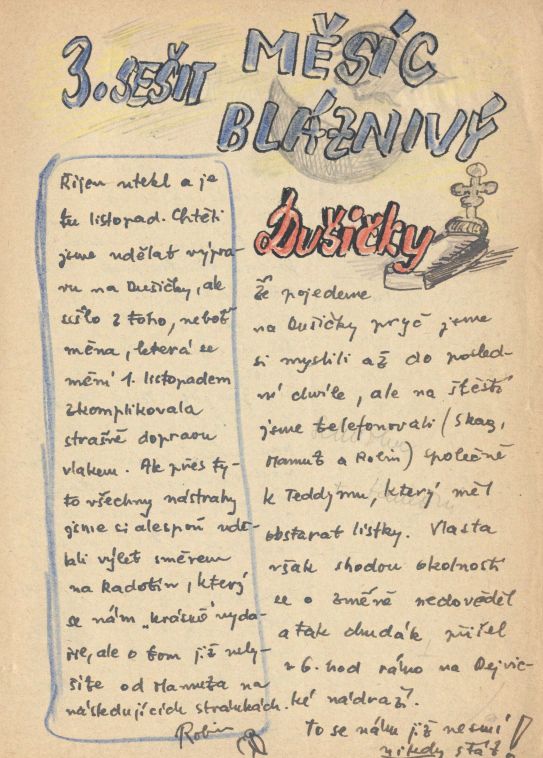 3. SEŠIT
MĚSÍC
BLÁZNIVÝ
Říjen utekl a je
tu listopad. Chtěli
jsme udělat výpra-
vu na Dušičky, ale
sešlo z toho, neboť
měna, která se
mění 1. listopadem
zkomplikovala
strašně dopravu
vlakem. Ale přes ty-
to všechny nástrahy
jsme si alespoň udě-
lali výlet směrem
na Radotín, který
se nám "krásně" vyda-
řil, ale o tom již usly-
šíte od Mamuta na
následujících stránkách.
Robin
Dušičky
Že pojedeme
na Dušičky pryč jsme
si myslili až do posled-
ní chvíle, ale na štěstí
jsme telefonovali (Skaz,
Mamut a Robin) společně
k Teddymu, který měl
obstarat lístky. Vlasta
však shodou okolností
se o změně nedověděl
a tak chudák přišel
v 6. hod ráno na Dejvic-
ké nádraží.
To se nám již nesmí
nikdy stát!